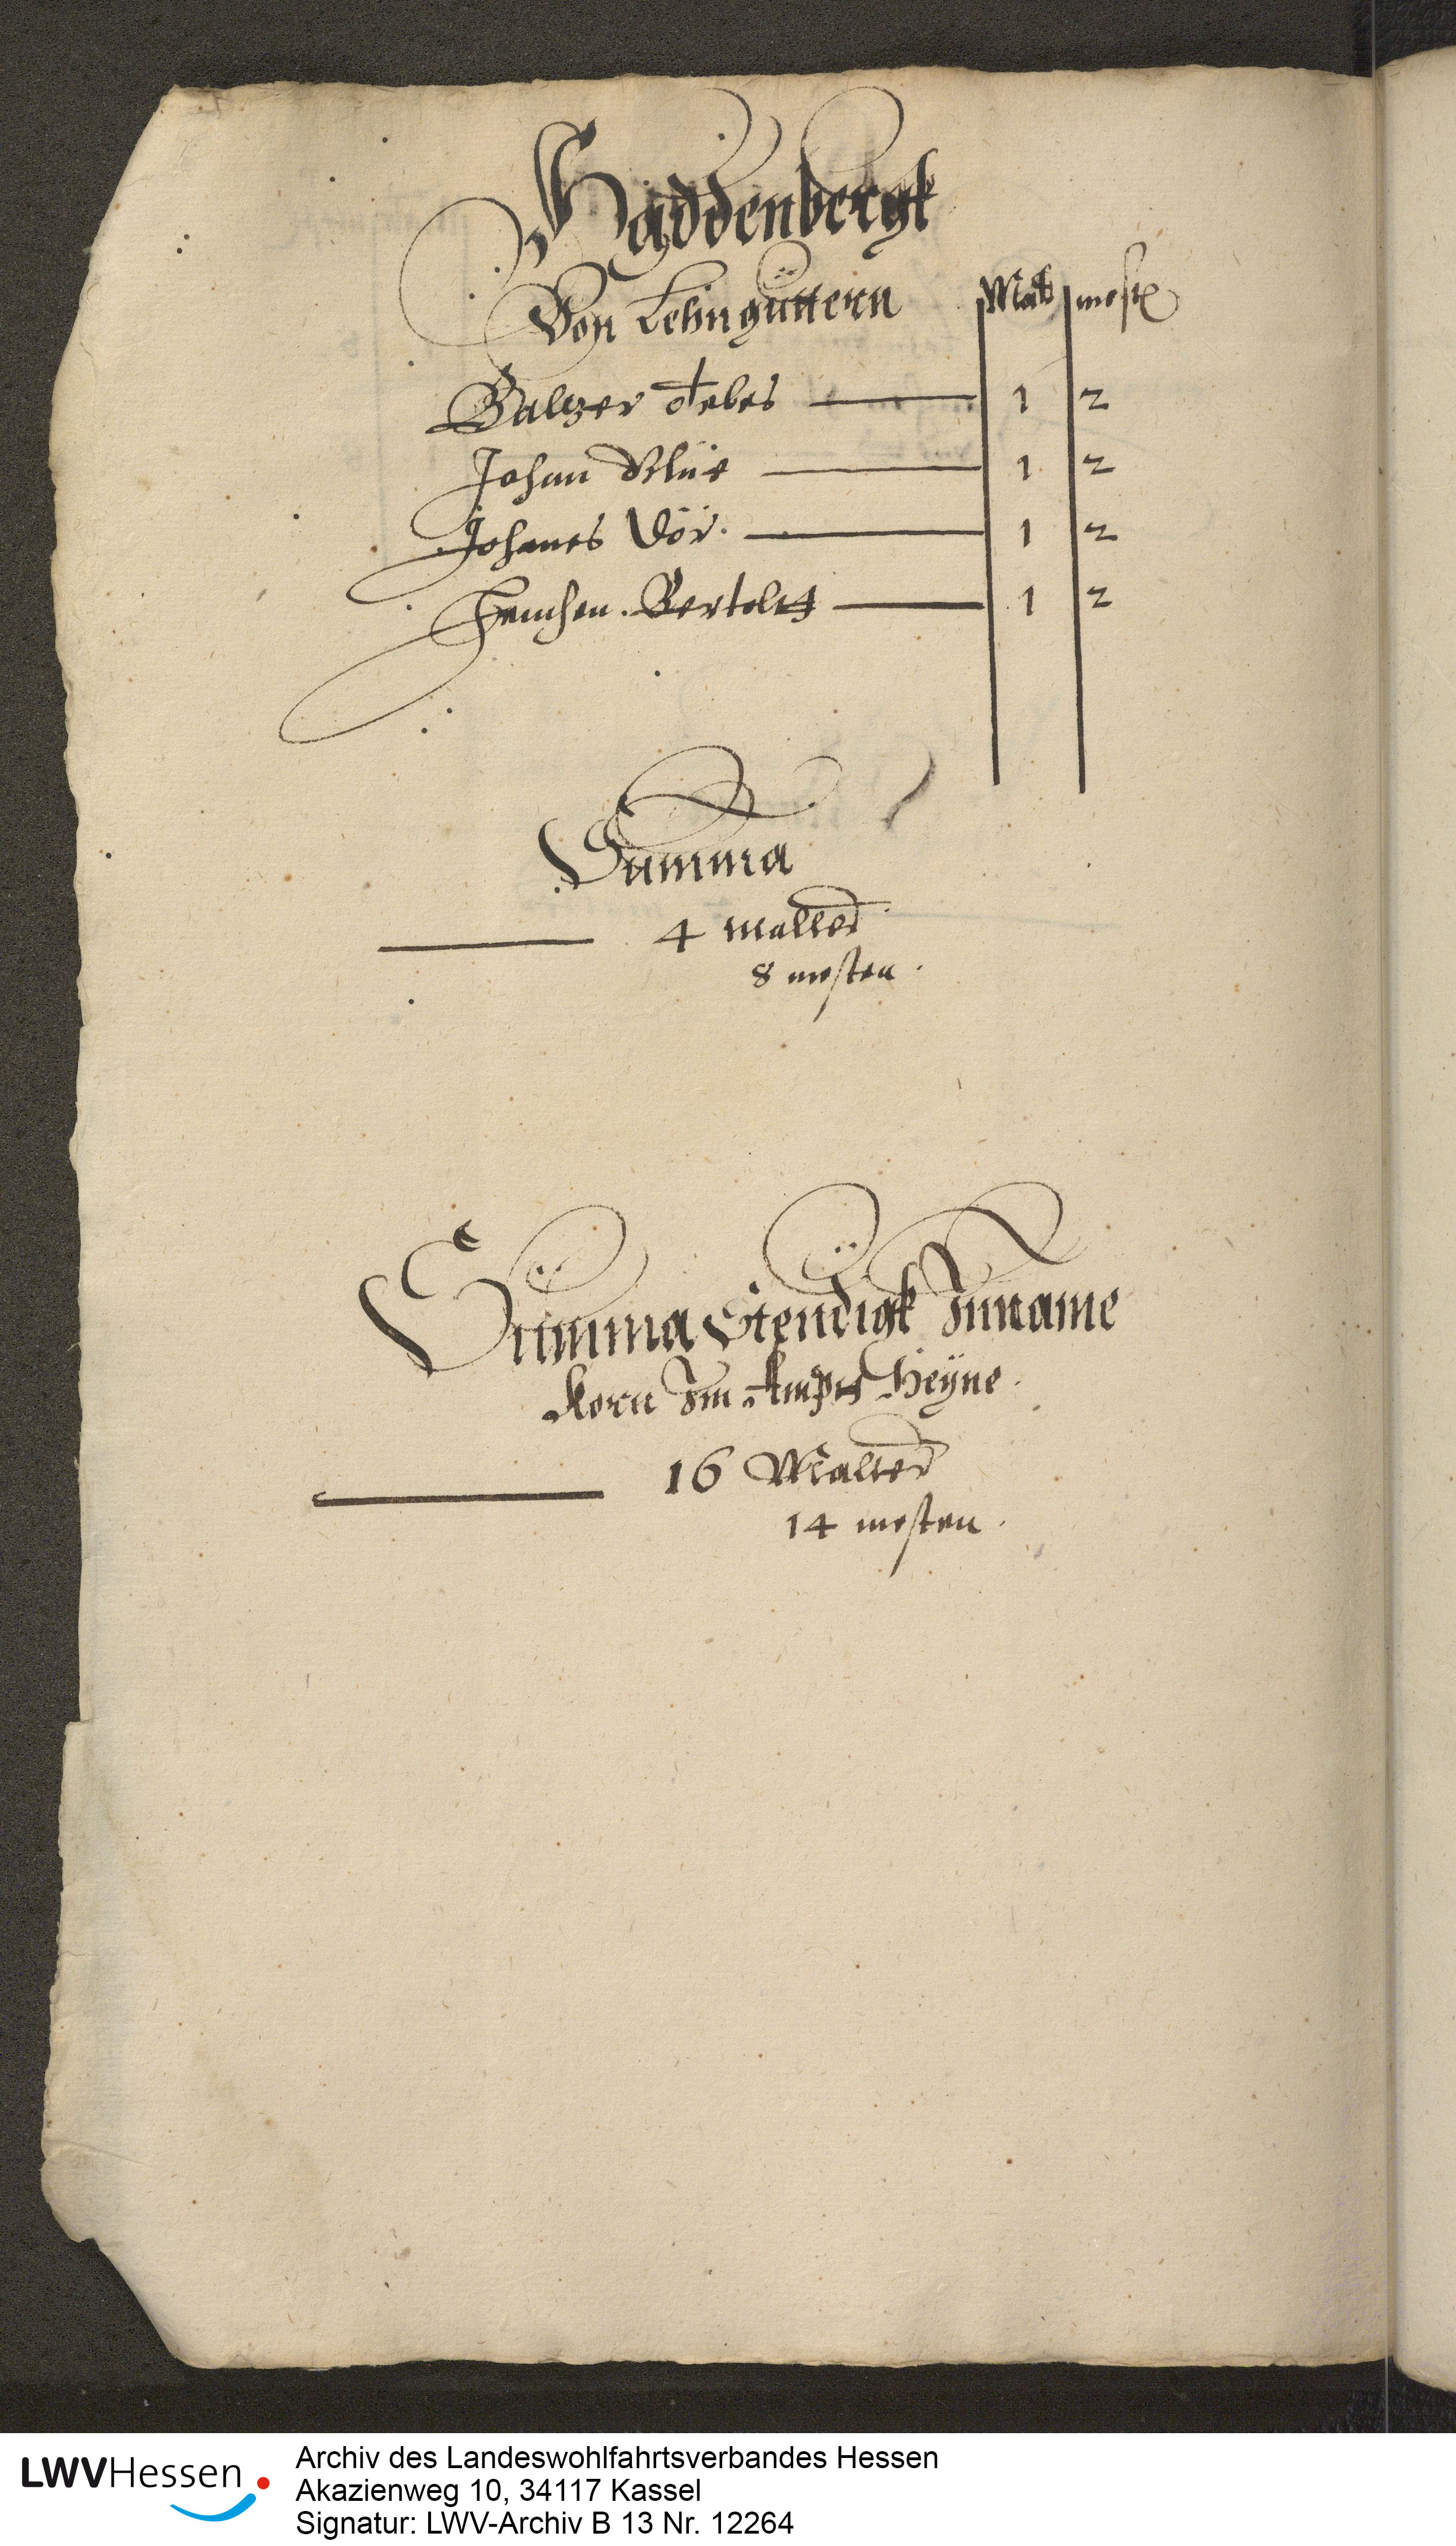 Haddenbergk
Von Lehngüttern Malt mest
Baltzer 1 2
Johan 1 2
Johanes Dör. 1 2
Henchen. Bertoltt 1 2
Summa
4 malter
8 mesten.
Summa Stendigk Inname
Korn Im Ampt Heÿne.
16 Malter
14 mesten.
LWVHessen
Archiv des Landeswohlfahrtsverbandes Hessen
Akazienweg 10, 34117 Kassel
Signatur: LWV-Archiv B 13 Nr. 12264